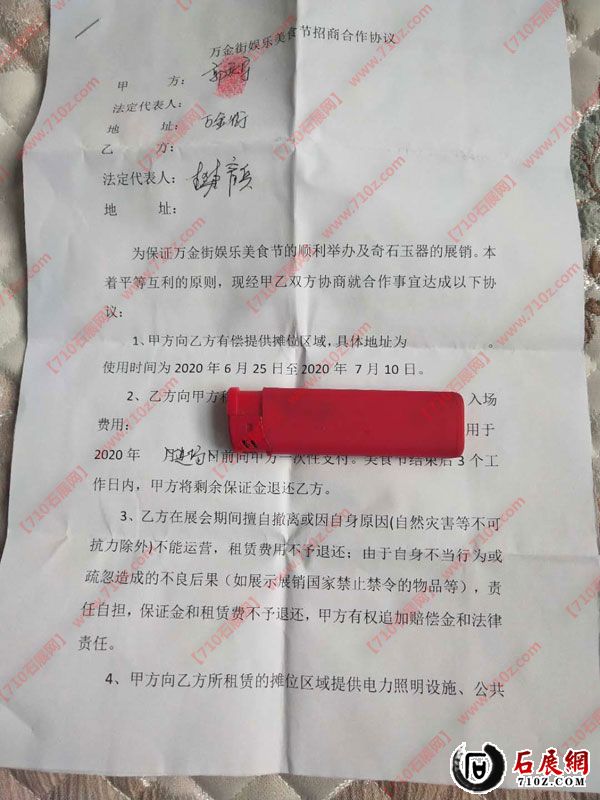 万金街娱乐美食节招商合作协议
甲 方：
法定代表人：
地 址： 万金街
乙 方：
法定代表人：
地 址：
为保证万金街娱乐美食节的顺利举办及奇石玉器的展销。本
着平等互利的原则，现经甲乙双方协商就合作事宜达成以下协
议：
1、甲方向乙方有偿提供摊位区域，具体地址为 。
使用时间为 2020 年 6 月 25 日至 2020 年 7 月 10 日。
2、乙方向甲方 入场
费用： 用于
2020 年 月 进场 日前向甲方一次性支付。美食节结束后 3 个工
作日内，甲方将剩余保证金退还乙方。
3、乙方在展会期间擅自撤离或因自身原因(自然灾害等不可
抗力除外)不能运营，租赁费用不予退还；由于自身不当行为或
疏忽造成的不良后果（如展示展销国家禁止禁令的物品等），责
任自担，保证金和租赁费不予退还，甲方有权追加赔偿金和法律
责任。
4、甲方向乙方所租赁的摊位区域提供电力照明设施、公共
【710石展网】www.710z.com
石展網
710z.com